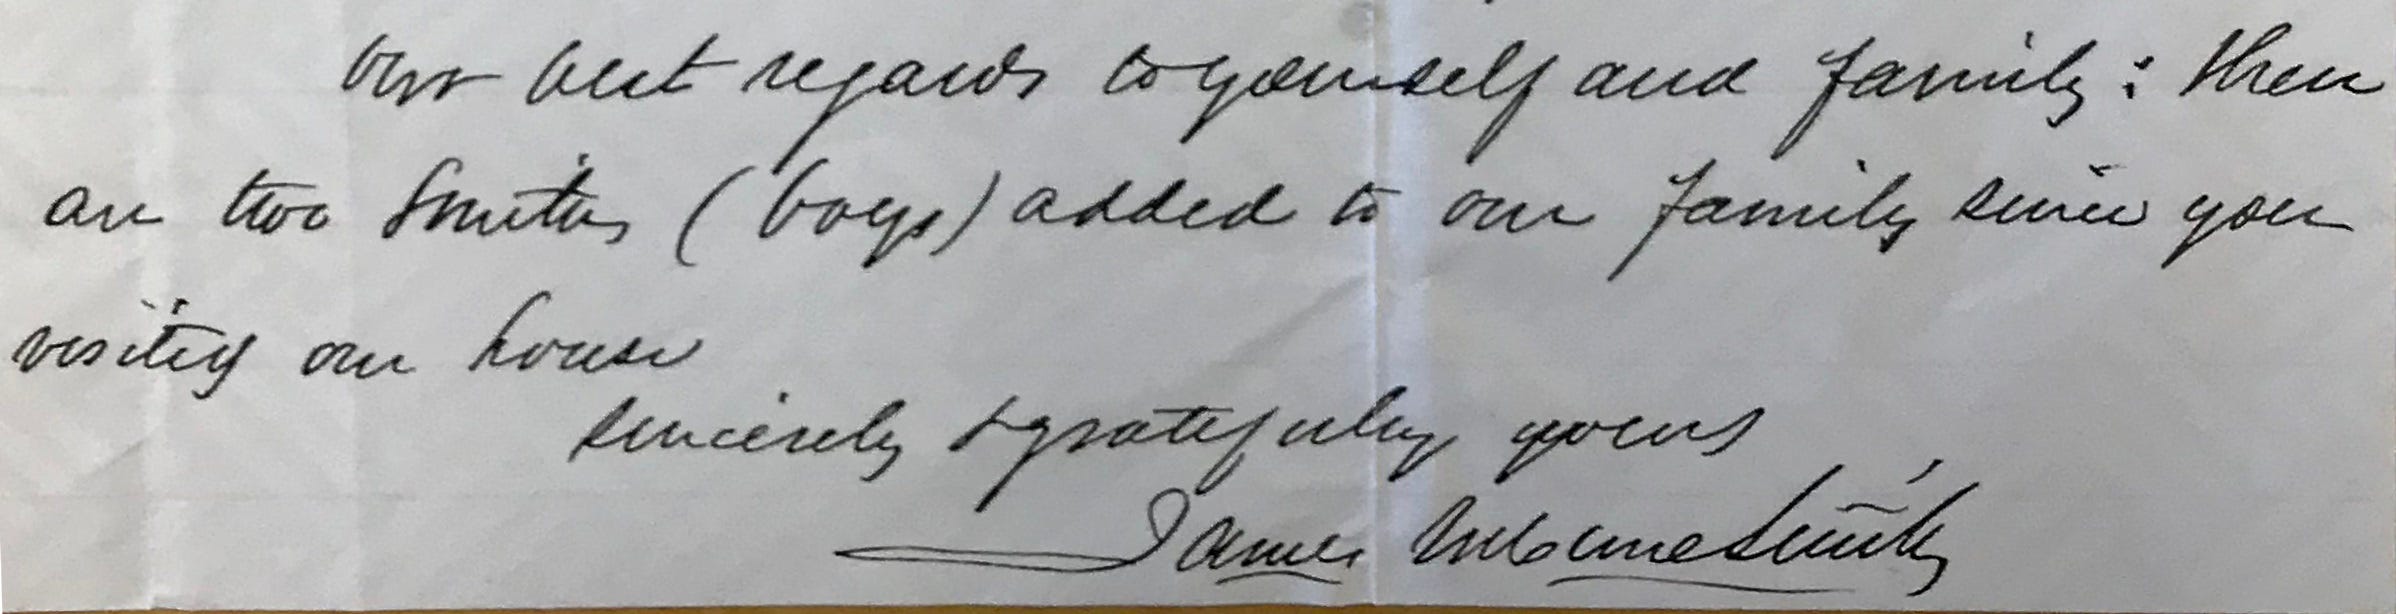 Our best regards to yourself and family: There
are two Smiths (boys) added to our family since your
visiting our house
sincerely & gratefully yours
James McCune Smith